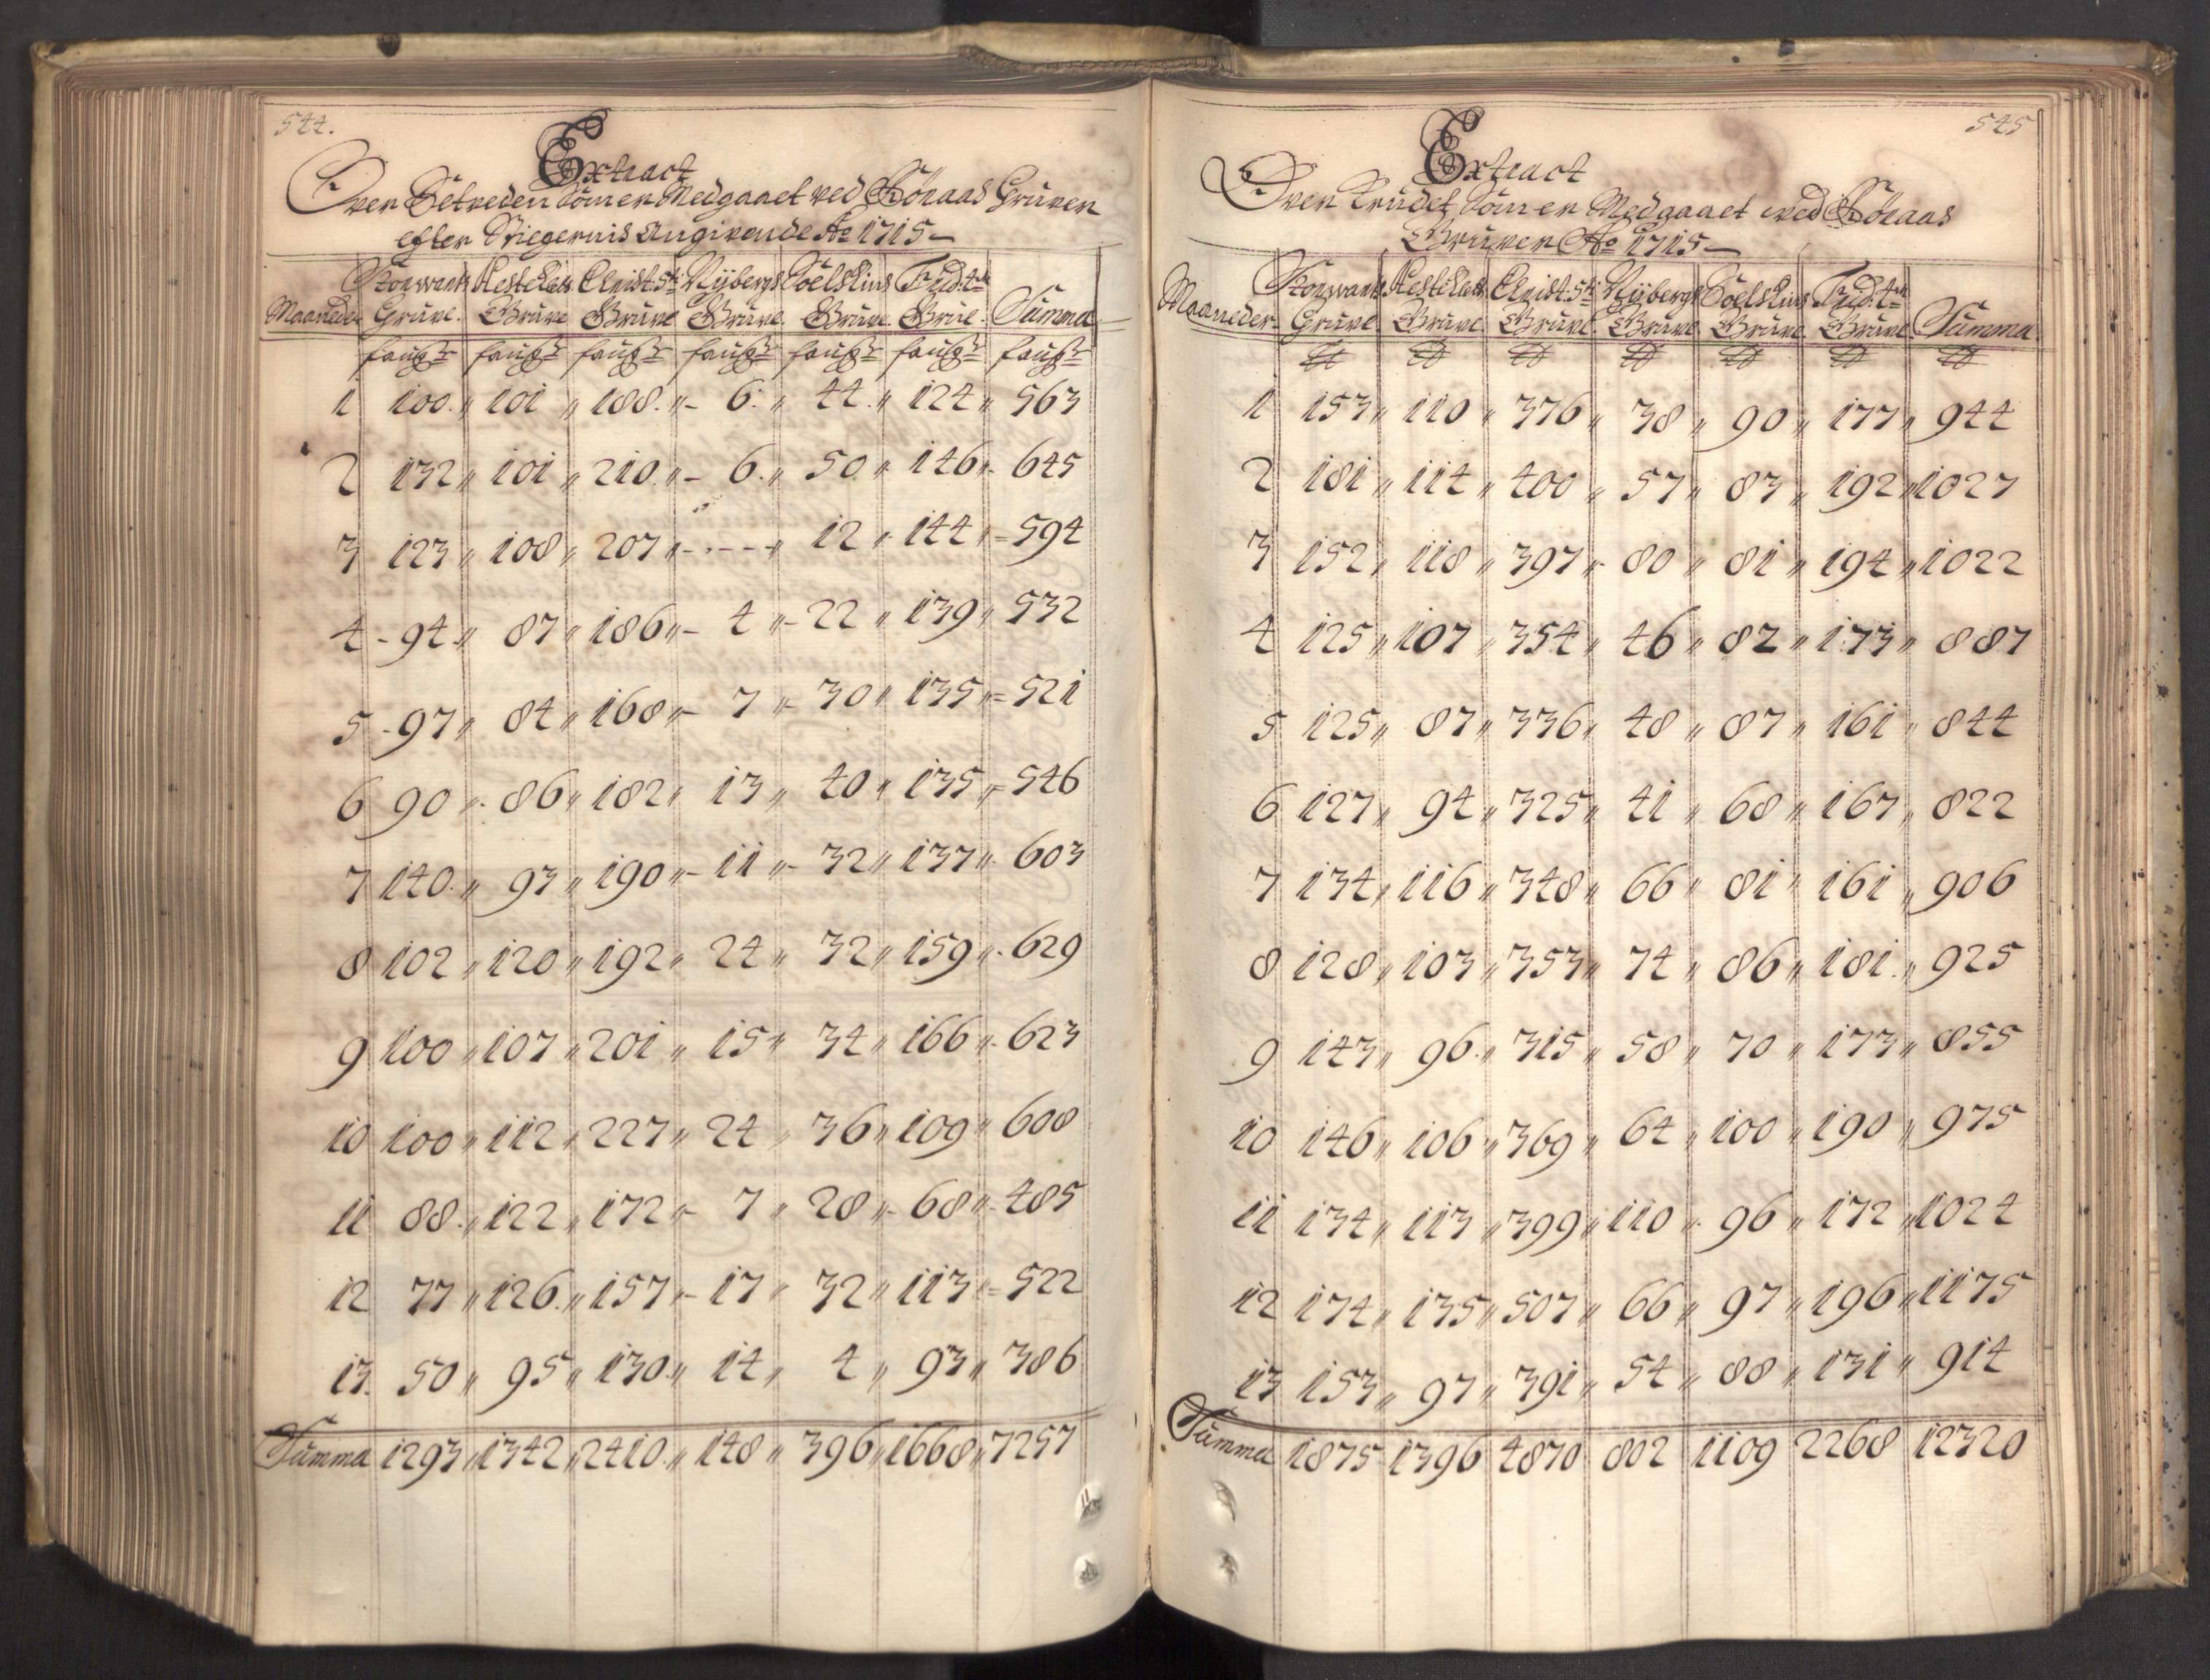 544.
Extract
Over Setveden Som er Medgaaet ved Röraas Gruver
efter Stiegernis Angivende Ao 1715
Maaneder Storwarts Grüve. Hestekl: Grüve Christ: 5ti Grüve Nÿbergs Grüve Soelskins Grüve. Frid: 4te Grüe. Summa
faufr faufr faufr faufr faufr faufr faufr
1 100 „ 101 „ 188. „ 6: „ 44 „ 124 „ 563
2 132 „ 101 „ 210 „ 6. „ 50 „ 126 „ 645
3 123 „ 108 „ 207 „ - - - - „ 12 „ 144 „ 594
4 94 „ 87 „ 186 „ 4 „ 22 „ 139 „ 532
5 97 „ 84 „ 168 „ 7 „ 30 „ 135 „ 521
6 90 „ 86 „ 182 „ 13 „ 40 „ 135 „ 546
7 140 „ 93 „ 190 „ 11 „ 32 „ 137 „ 603
8 102 „ 120 „ 192 „ 24 „ 32 „ 159 „ 629
9 100 „ 107 „ 201 „ 15 „ 34 „ 166 „ 623
10 100 „ 112 „ 227 „ 24 „ 36 „ 109 „ 608
11 88 „ 122 „ 172 „ 7 „ 28 „ 68 „ 485
12 77 „ 126 „ 157 „ 17 „ 32 „ 113 „ 522
13. 50 „ 95 „ 130 „ 14 „ 4 „ 93 „ 386
Summa 1293 „ 1342 „ 2410 „ 148 „ 396 „ 1668 „ 7257
545
Extract
Over Krudet Som er Medgaaet wed Röraas
Gruver Ao 1715
Maaneder Storwarts Grüve Hestekl: Grüve Christ: 5ti Grüve Nÿbergs Grüve Soelskins Grüve Frid: 4te Grüve Summa
℔ ℔ ℔ ℔ ℔ ℔ ℔
1 153 „ 110 „ 376 „ 38 „ 90 „ 177 „ 944
2 181 „ 114 „ 400 „ 57 „ 83 „ 192 „ 1027
3 152 „ 118 „ 397 „ 80 „ 81 „ 194 „ 1022
4 125 „ 107 „ 354 „ 46 „ 82 „ 173 „ 887
5 125 „ 87 „ 336 „ 48 „ 87 „ 161 „ 844
6 127 „ 94 „ 325 „ 41 „ 68 „ 167 „ 822
7 134 „ 116 „ 348 „ 66 „ 81 „ 161 „ 906
8 128 „ 103 „ 353 „ 74 „ 86 „ 181 „ 925
9 143 „ 96 „ 315 „ 58 „ 70 „ 173 „ 855
10 146 „ 106 „ 369 „ 64 „ 100 „ 190 „ 975
11 134 „ 113 „ 399 „ 110 „ 96 „ 172 „ 1024
12 174 „ 135 „ 507 „ 66 „ 97 „ 196 „ 1175
13 153 „ 97 „ 391 „ 54 „ 88 „ 131 „ 914
Summa 1875 1396 4870 802 1109 2268 12320